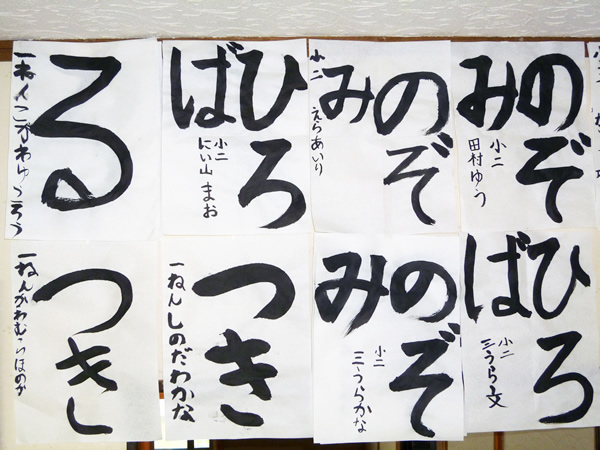 のぞ
み
小二
田村ゆう
のぞ
み
小二
えらあいり
ひろ
ば
小二
にい山まお
る
ひろ
ば
小二
三うら文
のぞ
み
小二
三うらかな
つき
一ねんしのだわかな
つき
一ねんかわむらほのか